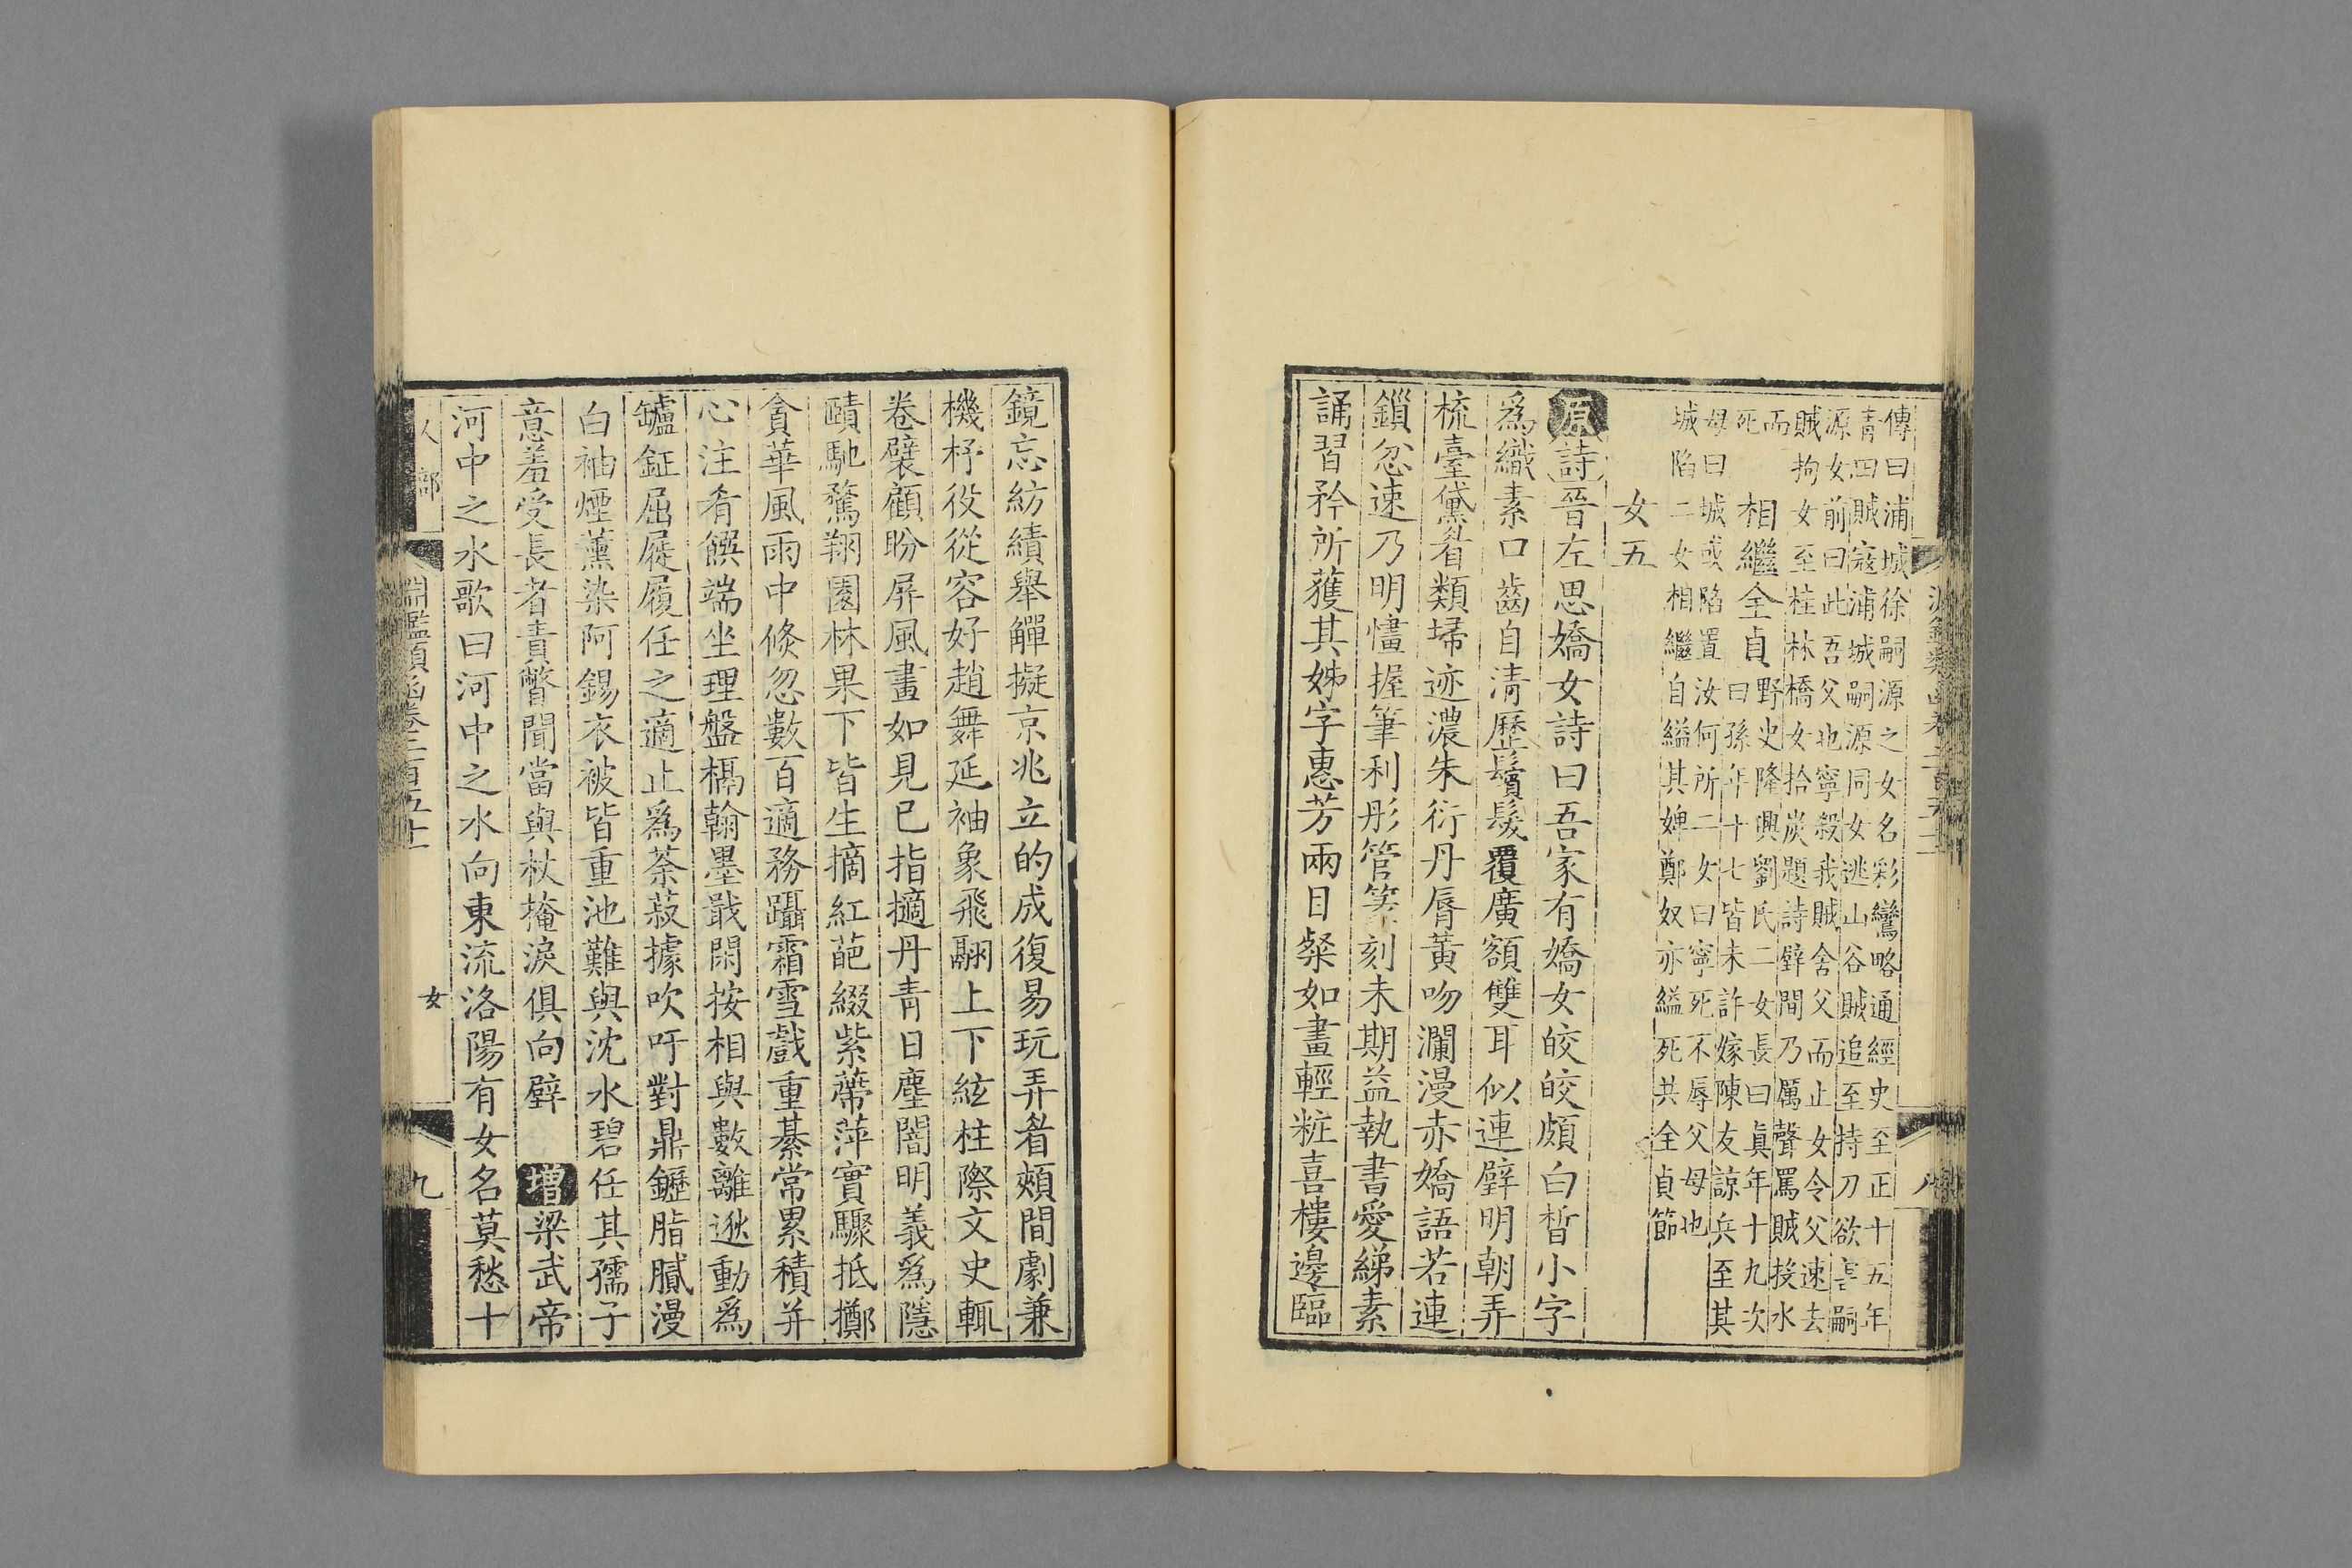 傳曰浦城徐嗣源之女名彩鸞略通經史至正十五年
青田賊寇浦城嗣源同女逃山谷賊追至持刀欲害嗣
源女前曰此吾父也寧殺我賊舍父而止女令父速去
賊拘女至桂林橋女拾炭題詩壁間乃厲聲罵賊投水
而
死
相繼全貞
野史隆興劉氏二女長曰貞年十九次
曰孫年十七皆未許嫁陳友諒兵至其
母曰城或陷置汝何所二女曰寧死不辱父母也
城陷二女相繼自縊其婢鄭奴亦縊死共全貞節
女五
原詩晉左思嬌女詩曰吾家有嬌女皎皎頗白皙小字
爲織素口齒自清歷鬢髮覆廣額雙耳似連璧明朝弄
梳臺黛眉類埽迹濃朱衍丹脣黃吻瀾漫赤嬌語若連
鎖忽速乃明㦎握筆利彤管篆刻未期益執書愛綈素
誦習矜所獲其姊字惠芳兩目粲如畫輕粧喜樓邊臨
鏡忘紡績舉觶擬京兆立的成復易玩弄眉頰間劇兼
機杼役從容好趙舞延袖象飛翮上下絃柱際文史輒
卷襞顧盼屏風畫如見已指擿丹青日塵闇明義爲隱
賾馳騖翔園林果下皆生摘紅葩綴紫蔕萍實驟抵擲
貪華風雨中倏忽數百適務躡霜雪戲重綦常累積并
心注肴饌端坐理盤槅翰墨戢閑按相與數離逖動爲
罏鉦屈屣履任之適止爲荼菽據吹吁對鼎䥶脂膩漫
白袖煙薰染阿錫衣被皆重池難與沈水碧任其孺子
意羞受長者責瞥聞當與杖掩淚俱向壁 增梁武帝
河中之水歌曰河中之水向東流洛陽有女名莫愁十
人部
淵鑑類函卷二百五十
女
九